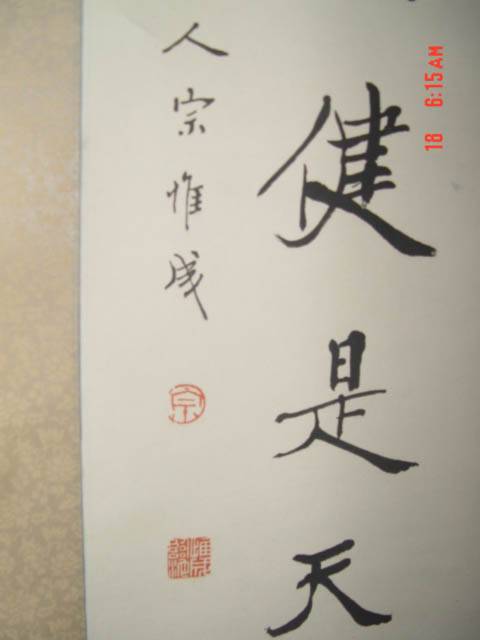 健是天
人宗惟成
宗
18 6:15AM